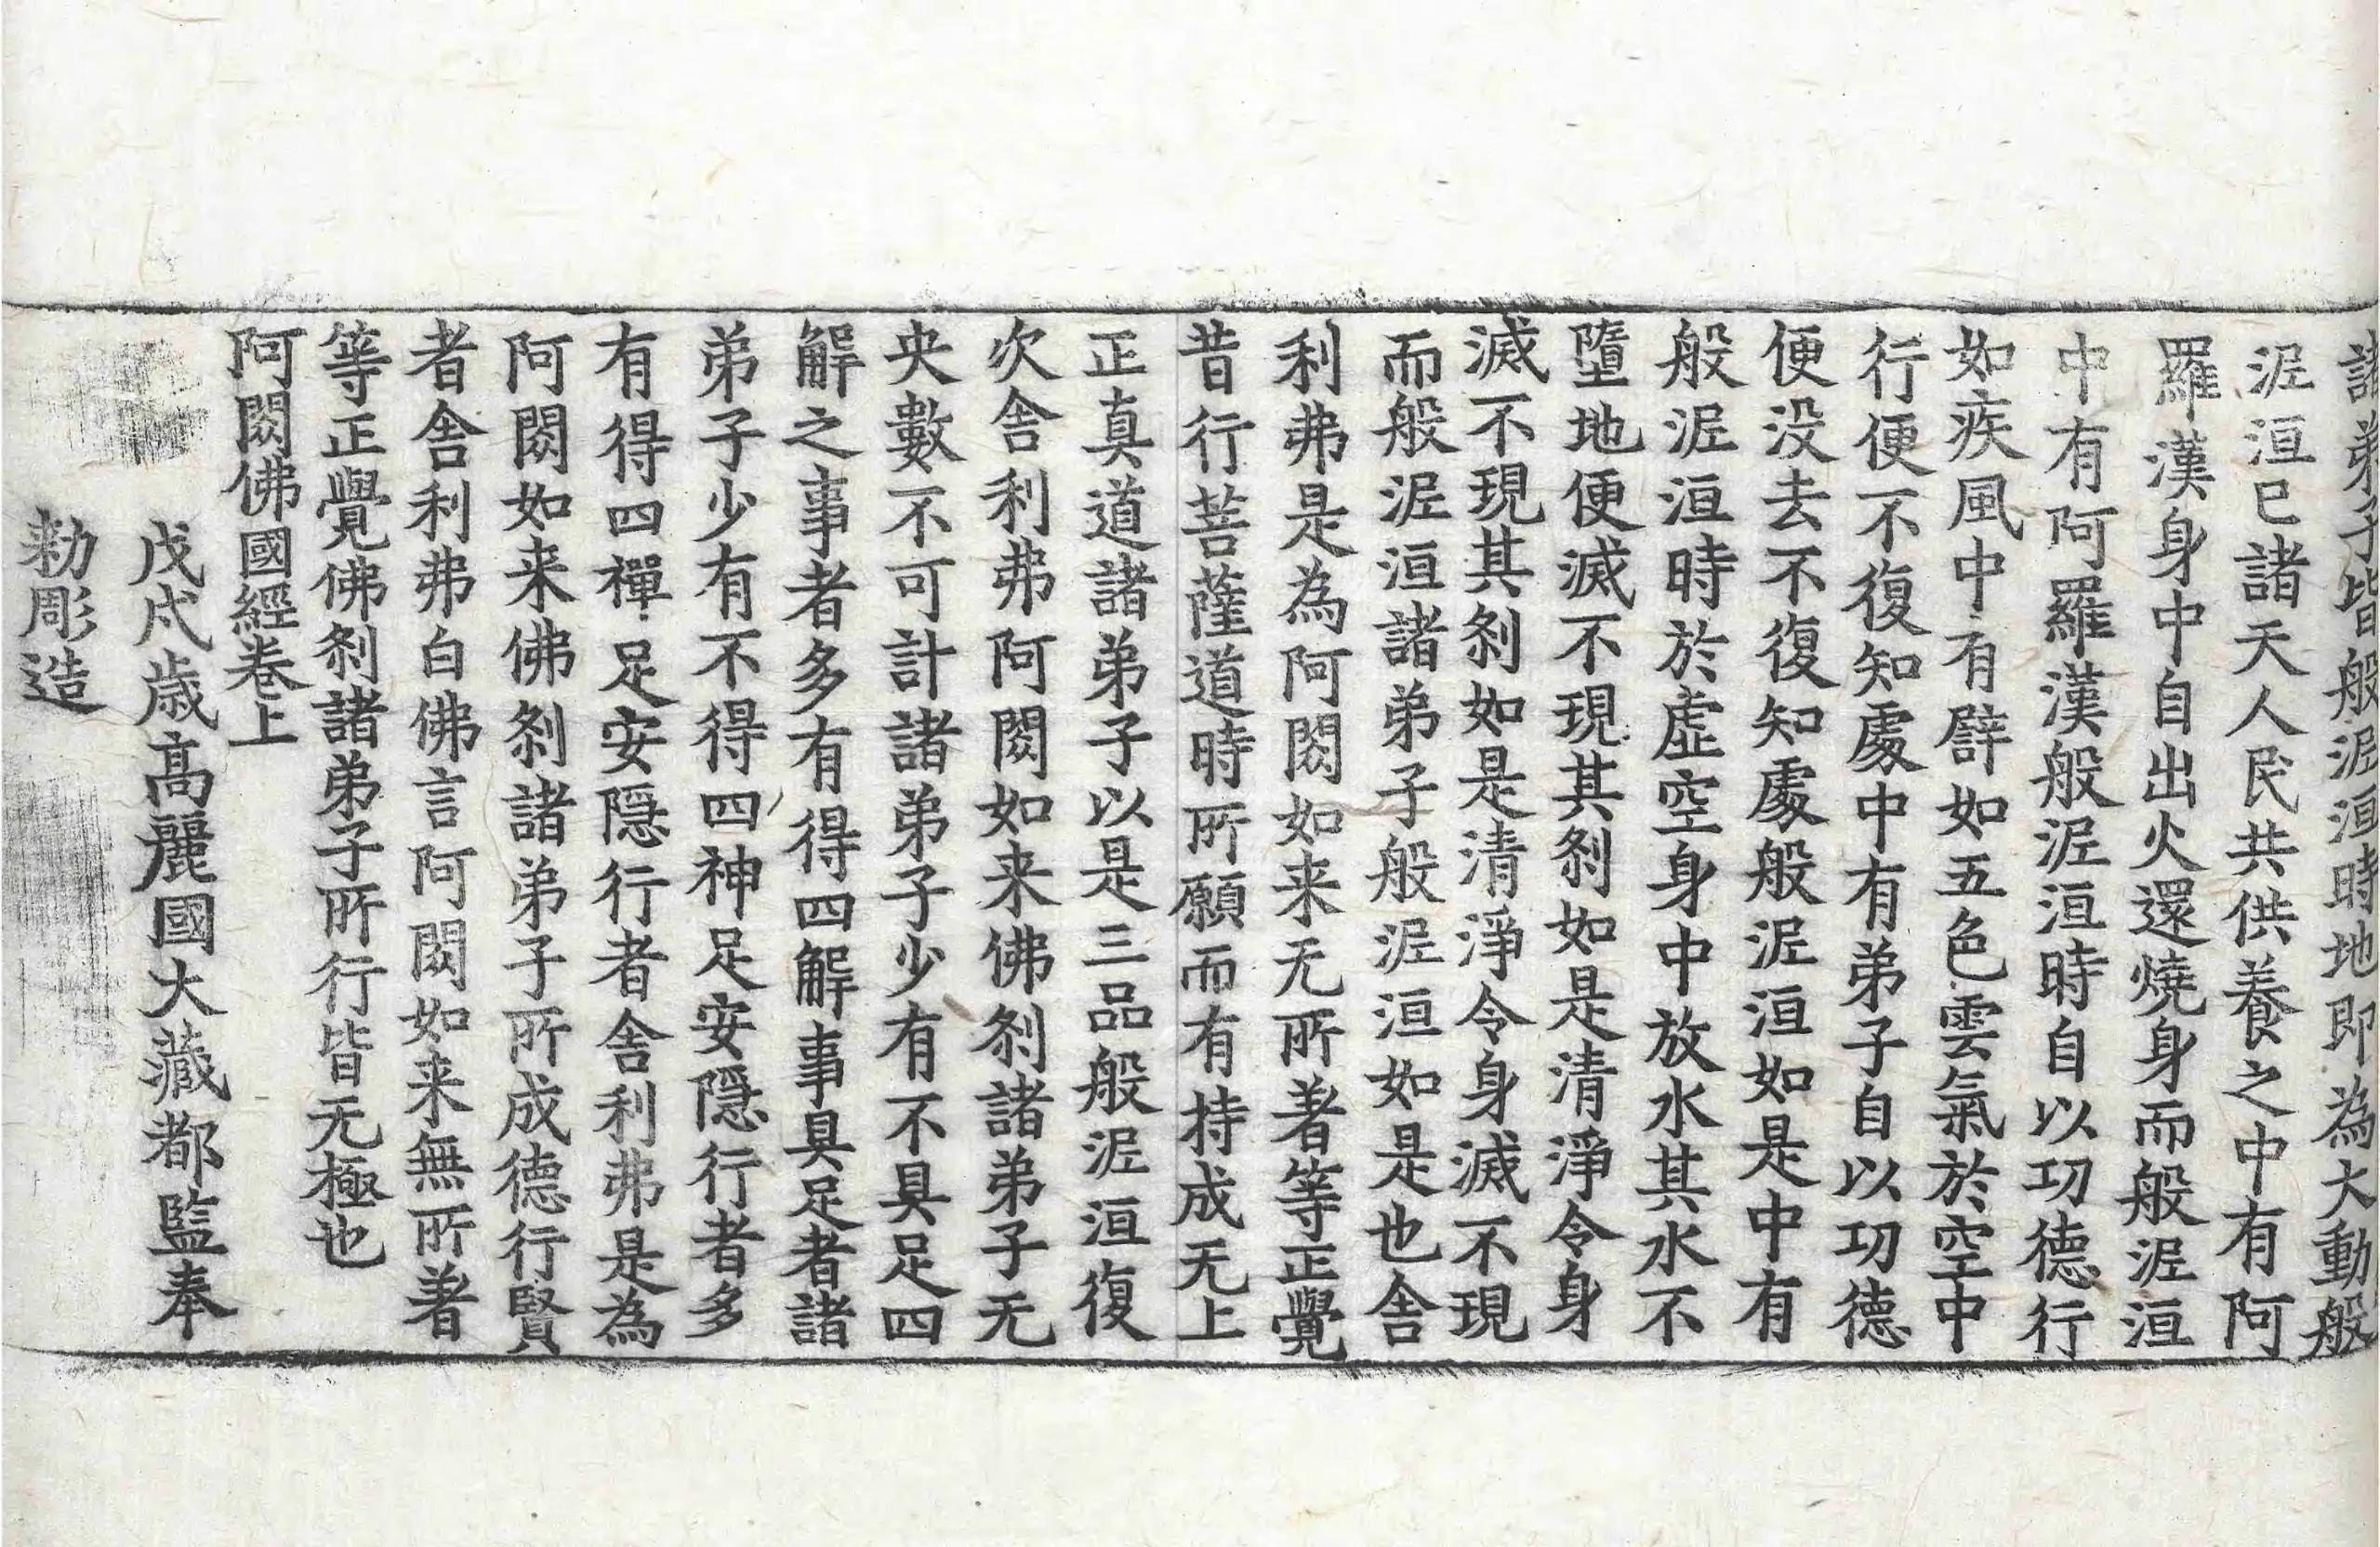 諸弟子皆般泥洹時地即為大動般
泥洹已諸天人民共供養之中有阿
羅漢身中自出火還燒身而般泥洹
中有阿羅漢般泥洹時自以功德行
如疾風中有譬如五色雲氣於空中
行便不復知處中有弟子自以功德
便没去不復知處般泥洹如是中有
般泥洹時於虛空身中放水其水不
墮地便滅不現其剎如是清淨令身
滅不現其剎如是清淨令身滅不現
而般泥洹諸弟子般泥洹如是也舍
利弗是為阿閦如来无所著等正覺
昔行菩薩道時所願而有持成无上
正真道諸弟子以是三品般泥洹復
次舍利弗阿閦如来佛剎諸弟子无
央數不可計諸弟子少有不具足四
解之事者多有得四解事具足者諸
弟子少有不得四神足安隱行者多
有得四禪足安隱行者舍利弗是為
阿閦如来佛剎諸弟子所成德行賢
者舍利弗白佛言阿閦如来無所著
等正覺佛剎諸弟子所行皆无極也
阿閦佛國經卷上
戊戌歲高麗國大藏都監奉
勑彫造